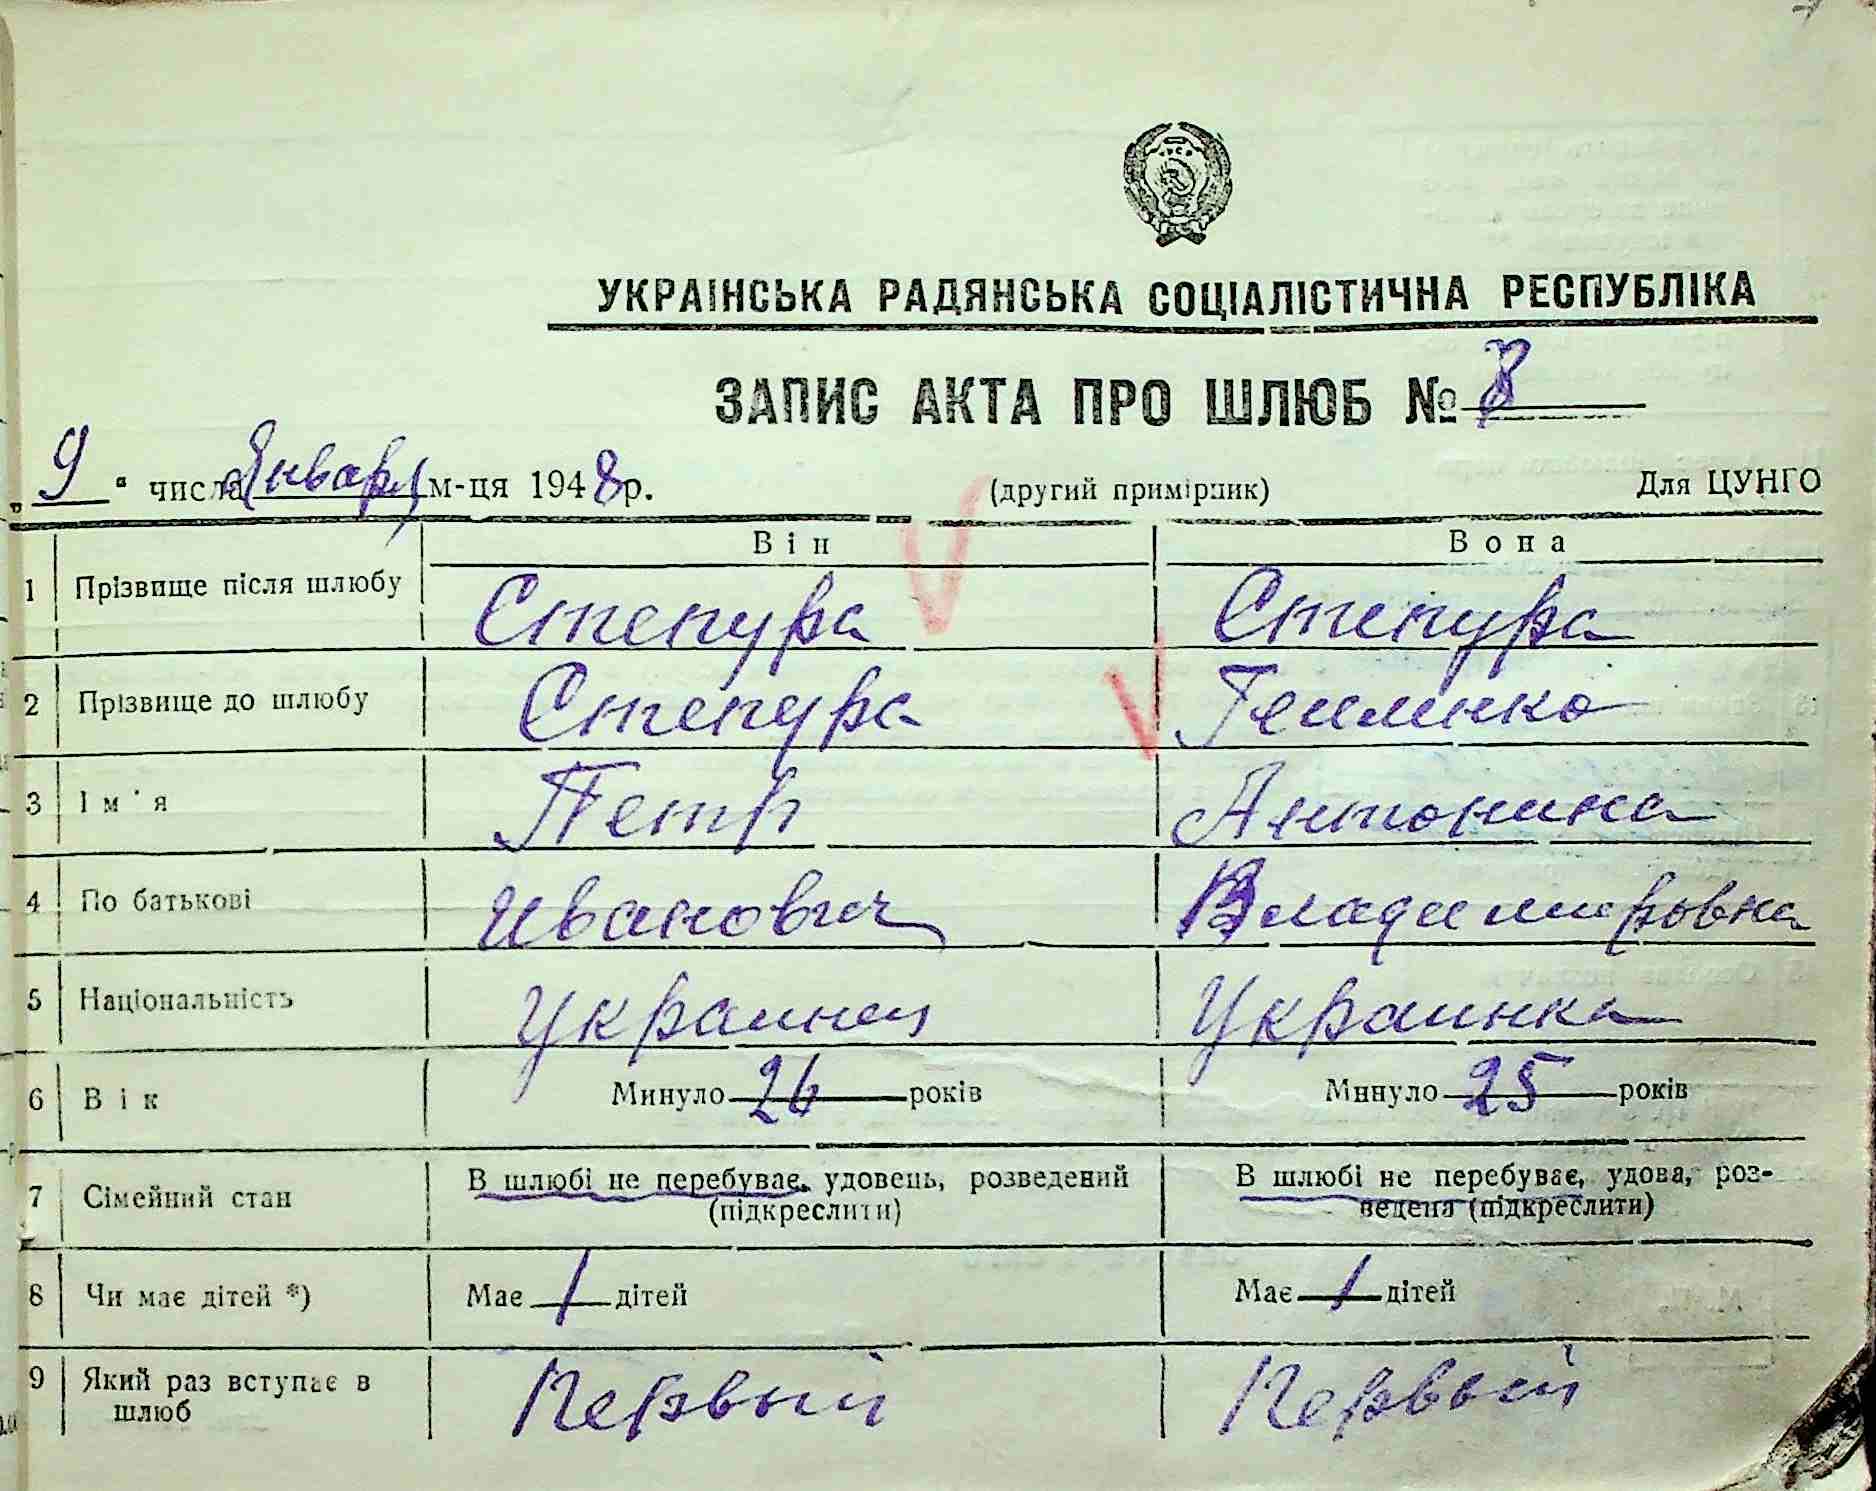 УКРАЇНСЬКА РАДЯНСЬКА СОЦІАЛІСТИЧНА РЕСПУБЛІКА
ЗАПИС АКТА ПРО ШЛЮБ № 8
„9" числа Января м-ця 1948 р. (другий примірник) Для ЦУНГО
Він Вона
1 Прізвище після шлюбу Степура Степура
2 Прізвище до шлюбу Степура
3 Ім'я Петр Антонина
4 По батькові Иванович Владимировна
5 Національність Украинец Украинка
6 Вік Минуло 26 років Минуло 25 років
7 Сімейний стан В шлюбі не перебуває, удовець, розведений (підкреслити) В шлюбі не перебуває, удова, роз-
ведена (підкреслити)
8 Чи має дітей *) Має / дітей Має / дітей
9 Який раз вступає в
шлюб Первый Первый